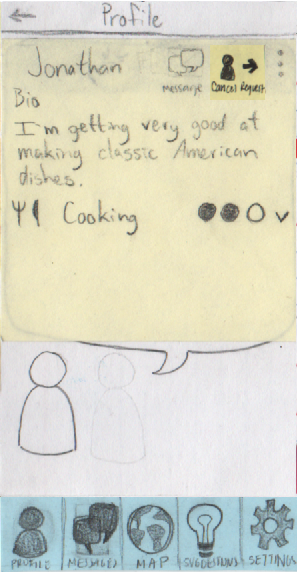 Profile
Jonathan
message
Cancel Request
Bio
I'm getting very good at
making classic American
dishes.
Cooking
PROFILE
MESSAGES
MAP
SUGGESTIONS
SETTINGS